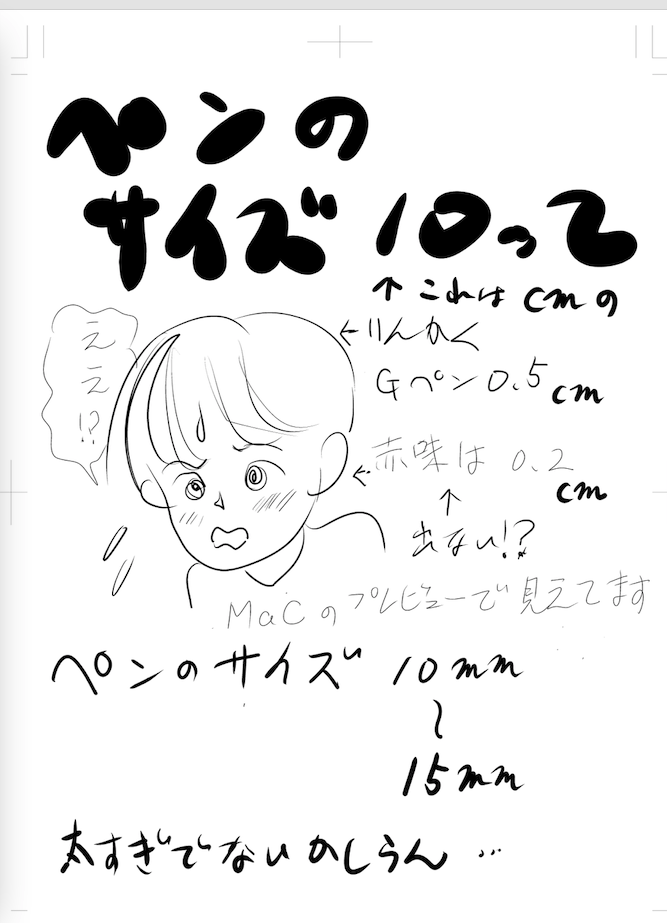 ペンの
サイズ 10って
↑これは cmの
ええ!?
←りんかく
Gペン0.5cm
←赤味は 0.2cm
↑
出ない!?
MaCのプレビューで見えてます
ペンのサイズ 10mm
〜
15mm
太すぎでないかしらん…